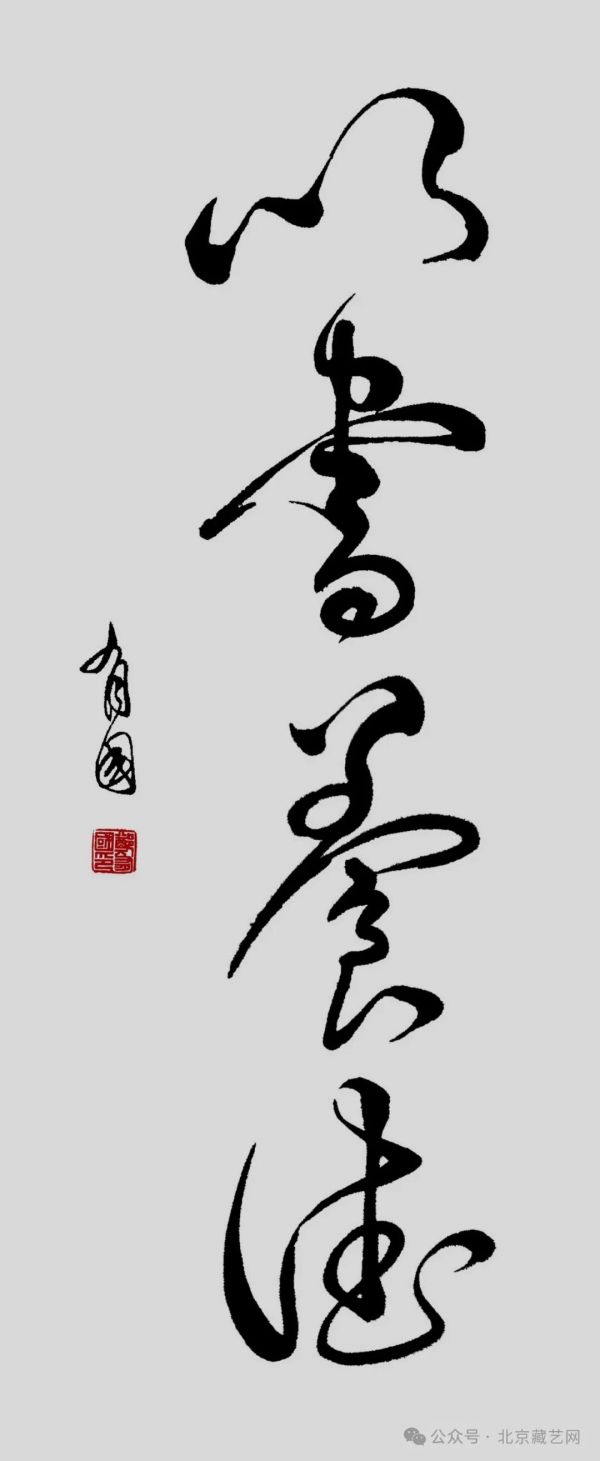 以書養德
有國
公众号 · 北京藏艺网